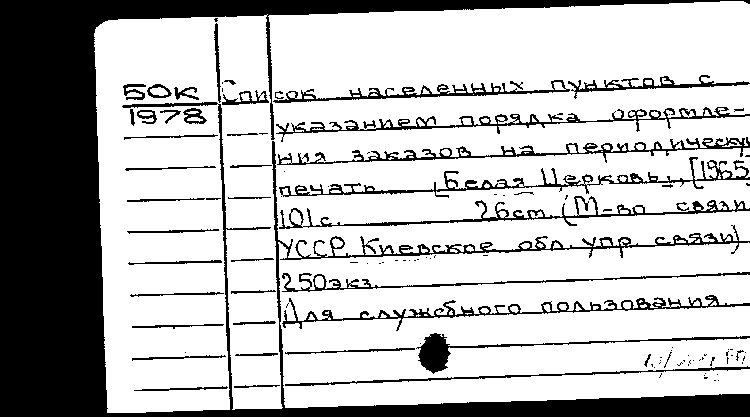 50К Список населенных пунктов с
1978 указанием порядка оформле-
ния заказов на периодическу
печать [Белая Церковь], [1965
101с. 26cm. (М-во связи
УССР. Киевское обл. упр. связи)
250экз.
Для служебного пользования.